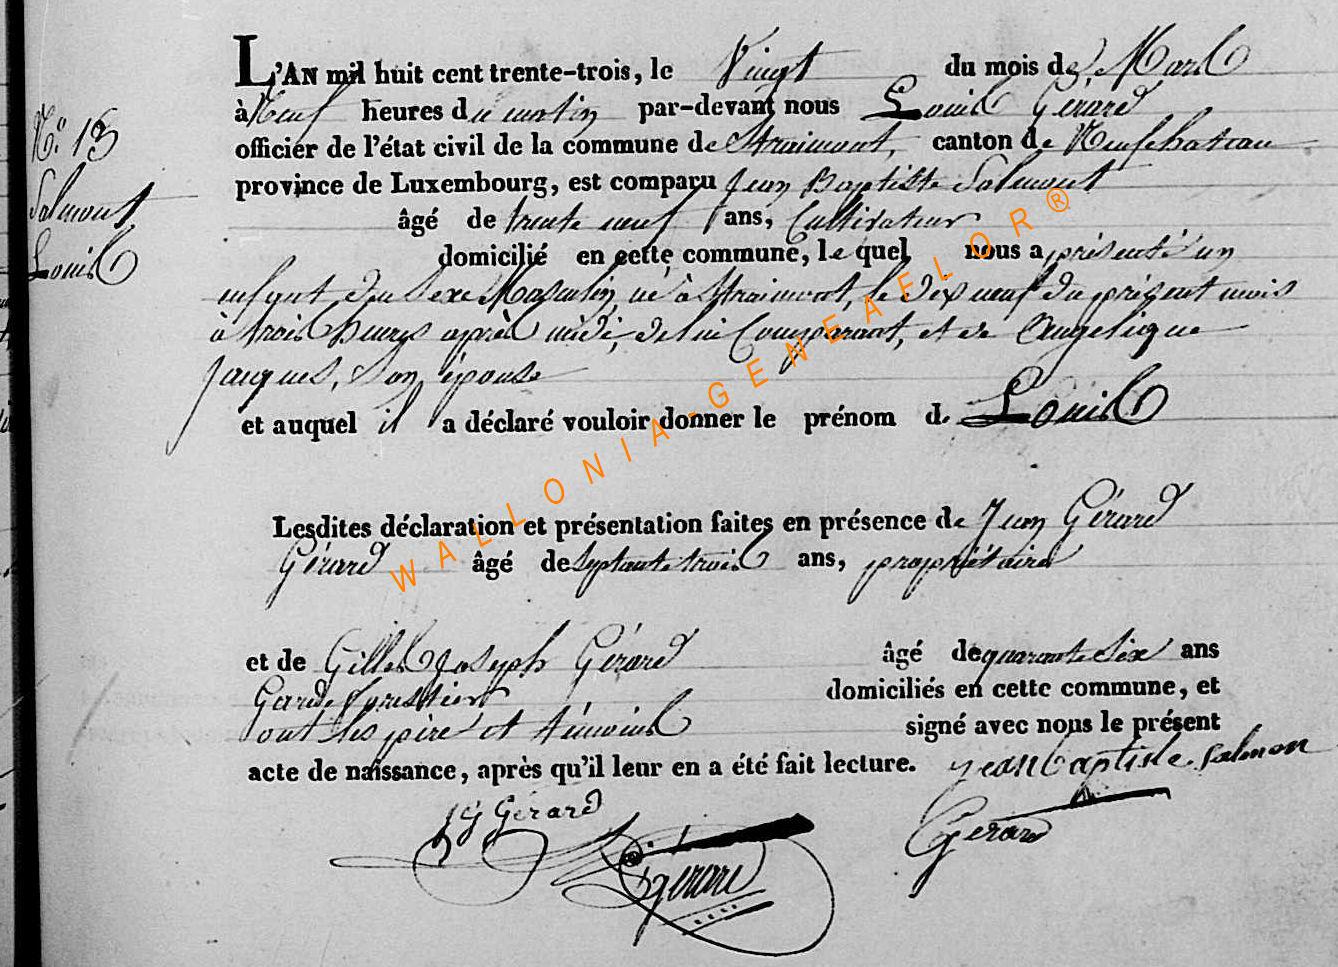 N.° 13
Salmont
Louis
L'AN mil huit cent trente-trois, le Vingt du mois de Mars
à Neuf heures du matin par-devant nous Louis Gérard
officier de l'état civil de la commune de Straimont, canton de Neufchateau
province de Luxembourg, est comparu Jean Baptiste Salmont
âgé de trente neuf ans, Cultivateur
domicilié en cette commune, le quel nous a présenté un
enfant du Sexe Masculin, né à Straimont, le dix neuf du présent mois
à trois heures après midi, de lui Comparant, et de Angelique
Jacques, son épouse
et auquel il a déclaré vouloir donner le prénom de Louis
Lesdites déclaration et présentation faites en présence de Jean Gérard
Gérard âgé de septante trois ans, propriétaire
et de Gilles Joseph Gérard âgé de quarante six ans
Garde forestier domiciliés en cette commune, et
ont les père et témoins signé avec nous le présent
acte de naissance, après qu'il leur en a été fait lecture. jean baptiste salmon
Gérard
Gerard
L gérard
WALLONIA-GENEAFLOR®